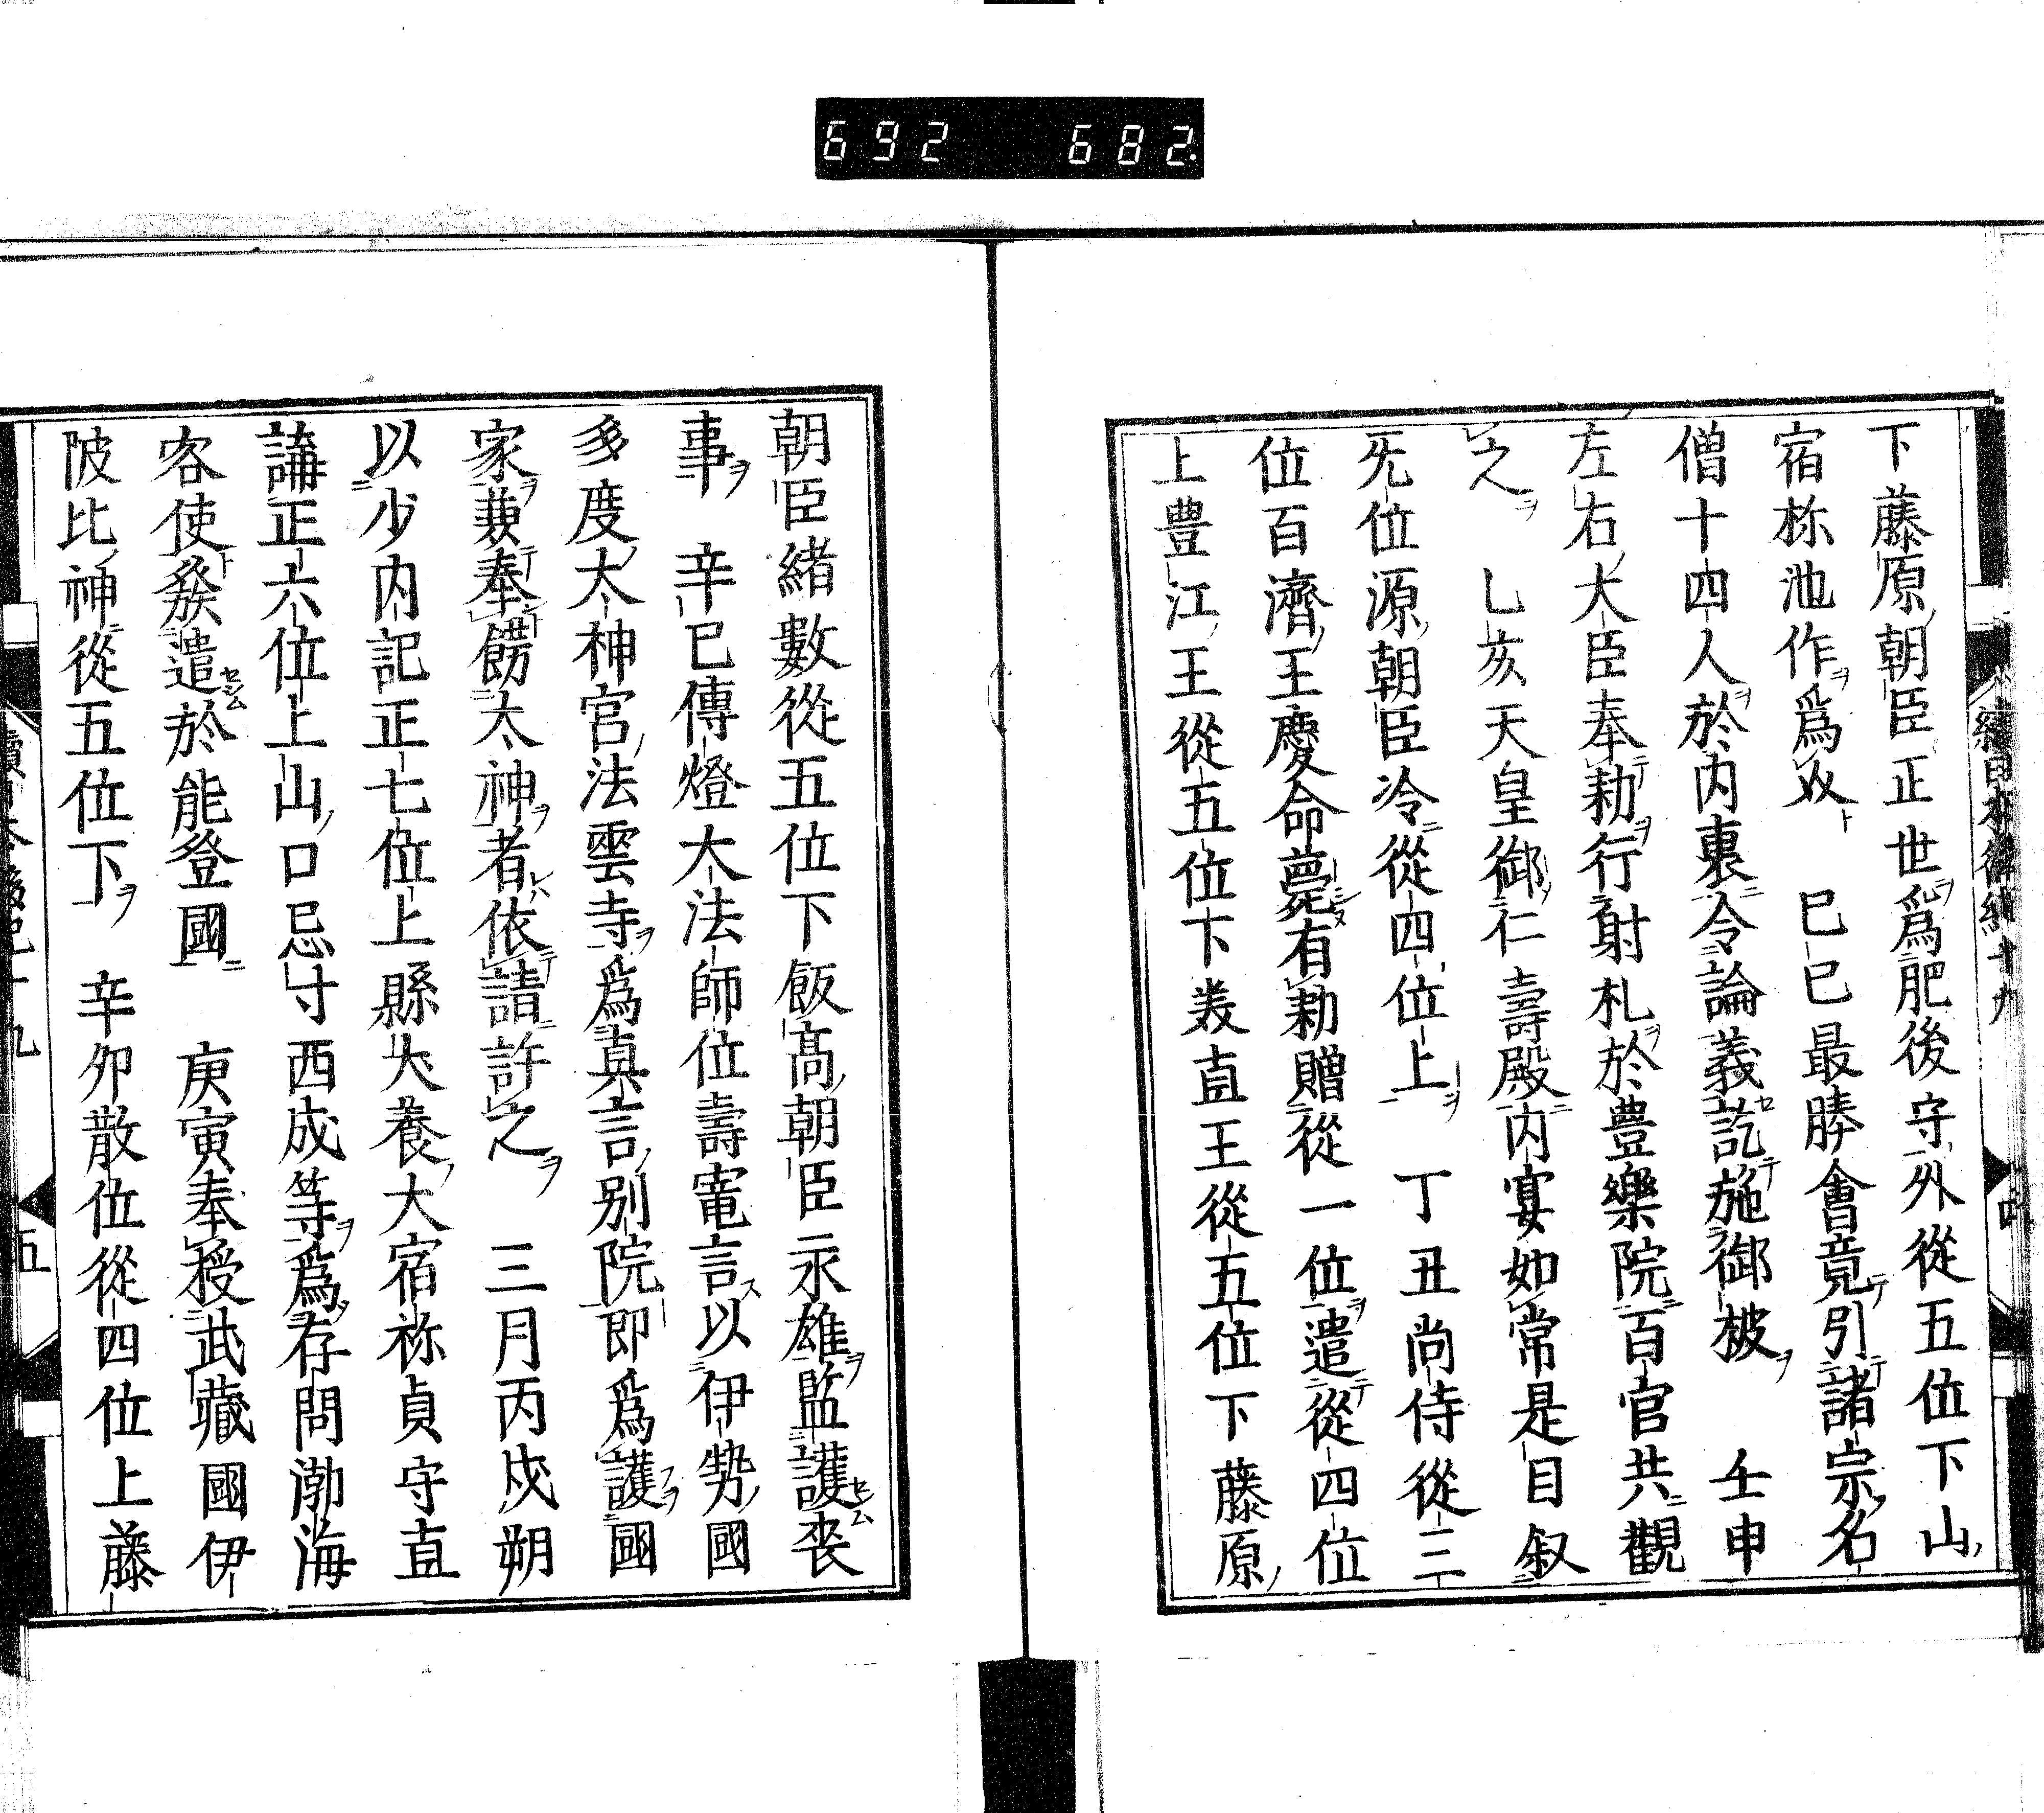 692 682
下藤原朝臣正世爲肥後守外從五位下山
宿祢池作爲㕝 巳巳最勝會竟引諸宗名
僧十四人於内裏令論義訖施御被 壬申
左右大臣奉勅行射礼於豊樂院百官共觀
之 乙亥天皇御仁壽殿内宴如常是日叙
无位源朝臣冷從四位上 丁丑尚侍從三
位百濟王慶命薨有勅贈從一位遣從四位
上豊江王從五位下美直王從五位下藤原
朝臣緒數從五位下飯髙朝臣永雄監護喪
事 辛巳傳燈大法師位壽竃言以伊勢國
多度大神宮法雲寺爲真言別院即爲護國
家兼奉餝太神者依請許之 三月丙戌朔
以少内記正七位上縣犬養大宿祢貞守直
講正六位上山口忌寸西成等爲存問渤海
客使發遣於能登國 庚寅奉授武藏國伊
陂比神從五位下 辛卯散位從四位上藤
五